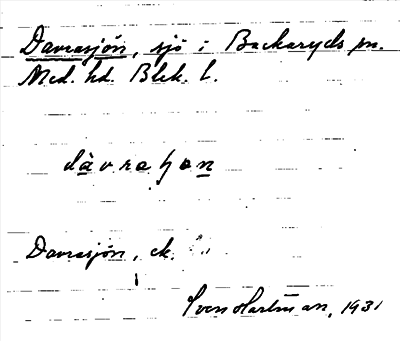 Davrasjön, sjö i Backaryds sn.
Med. hd. Blek. l.
dàvraɧən
Davrasjön, ek.
Sven Hartman, 1931